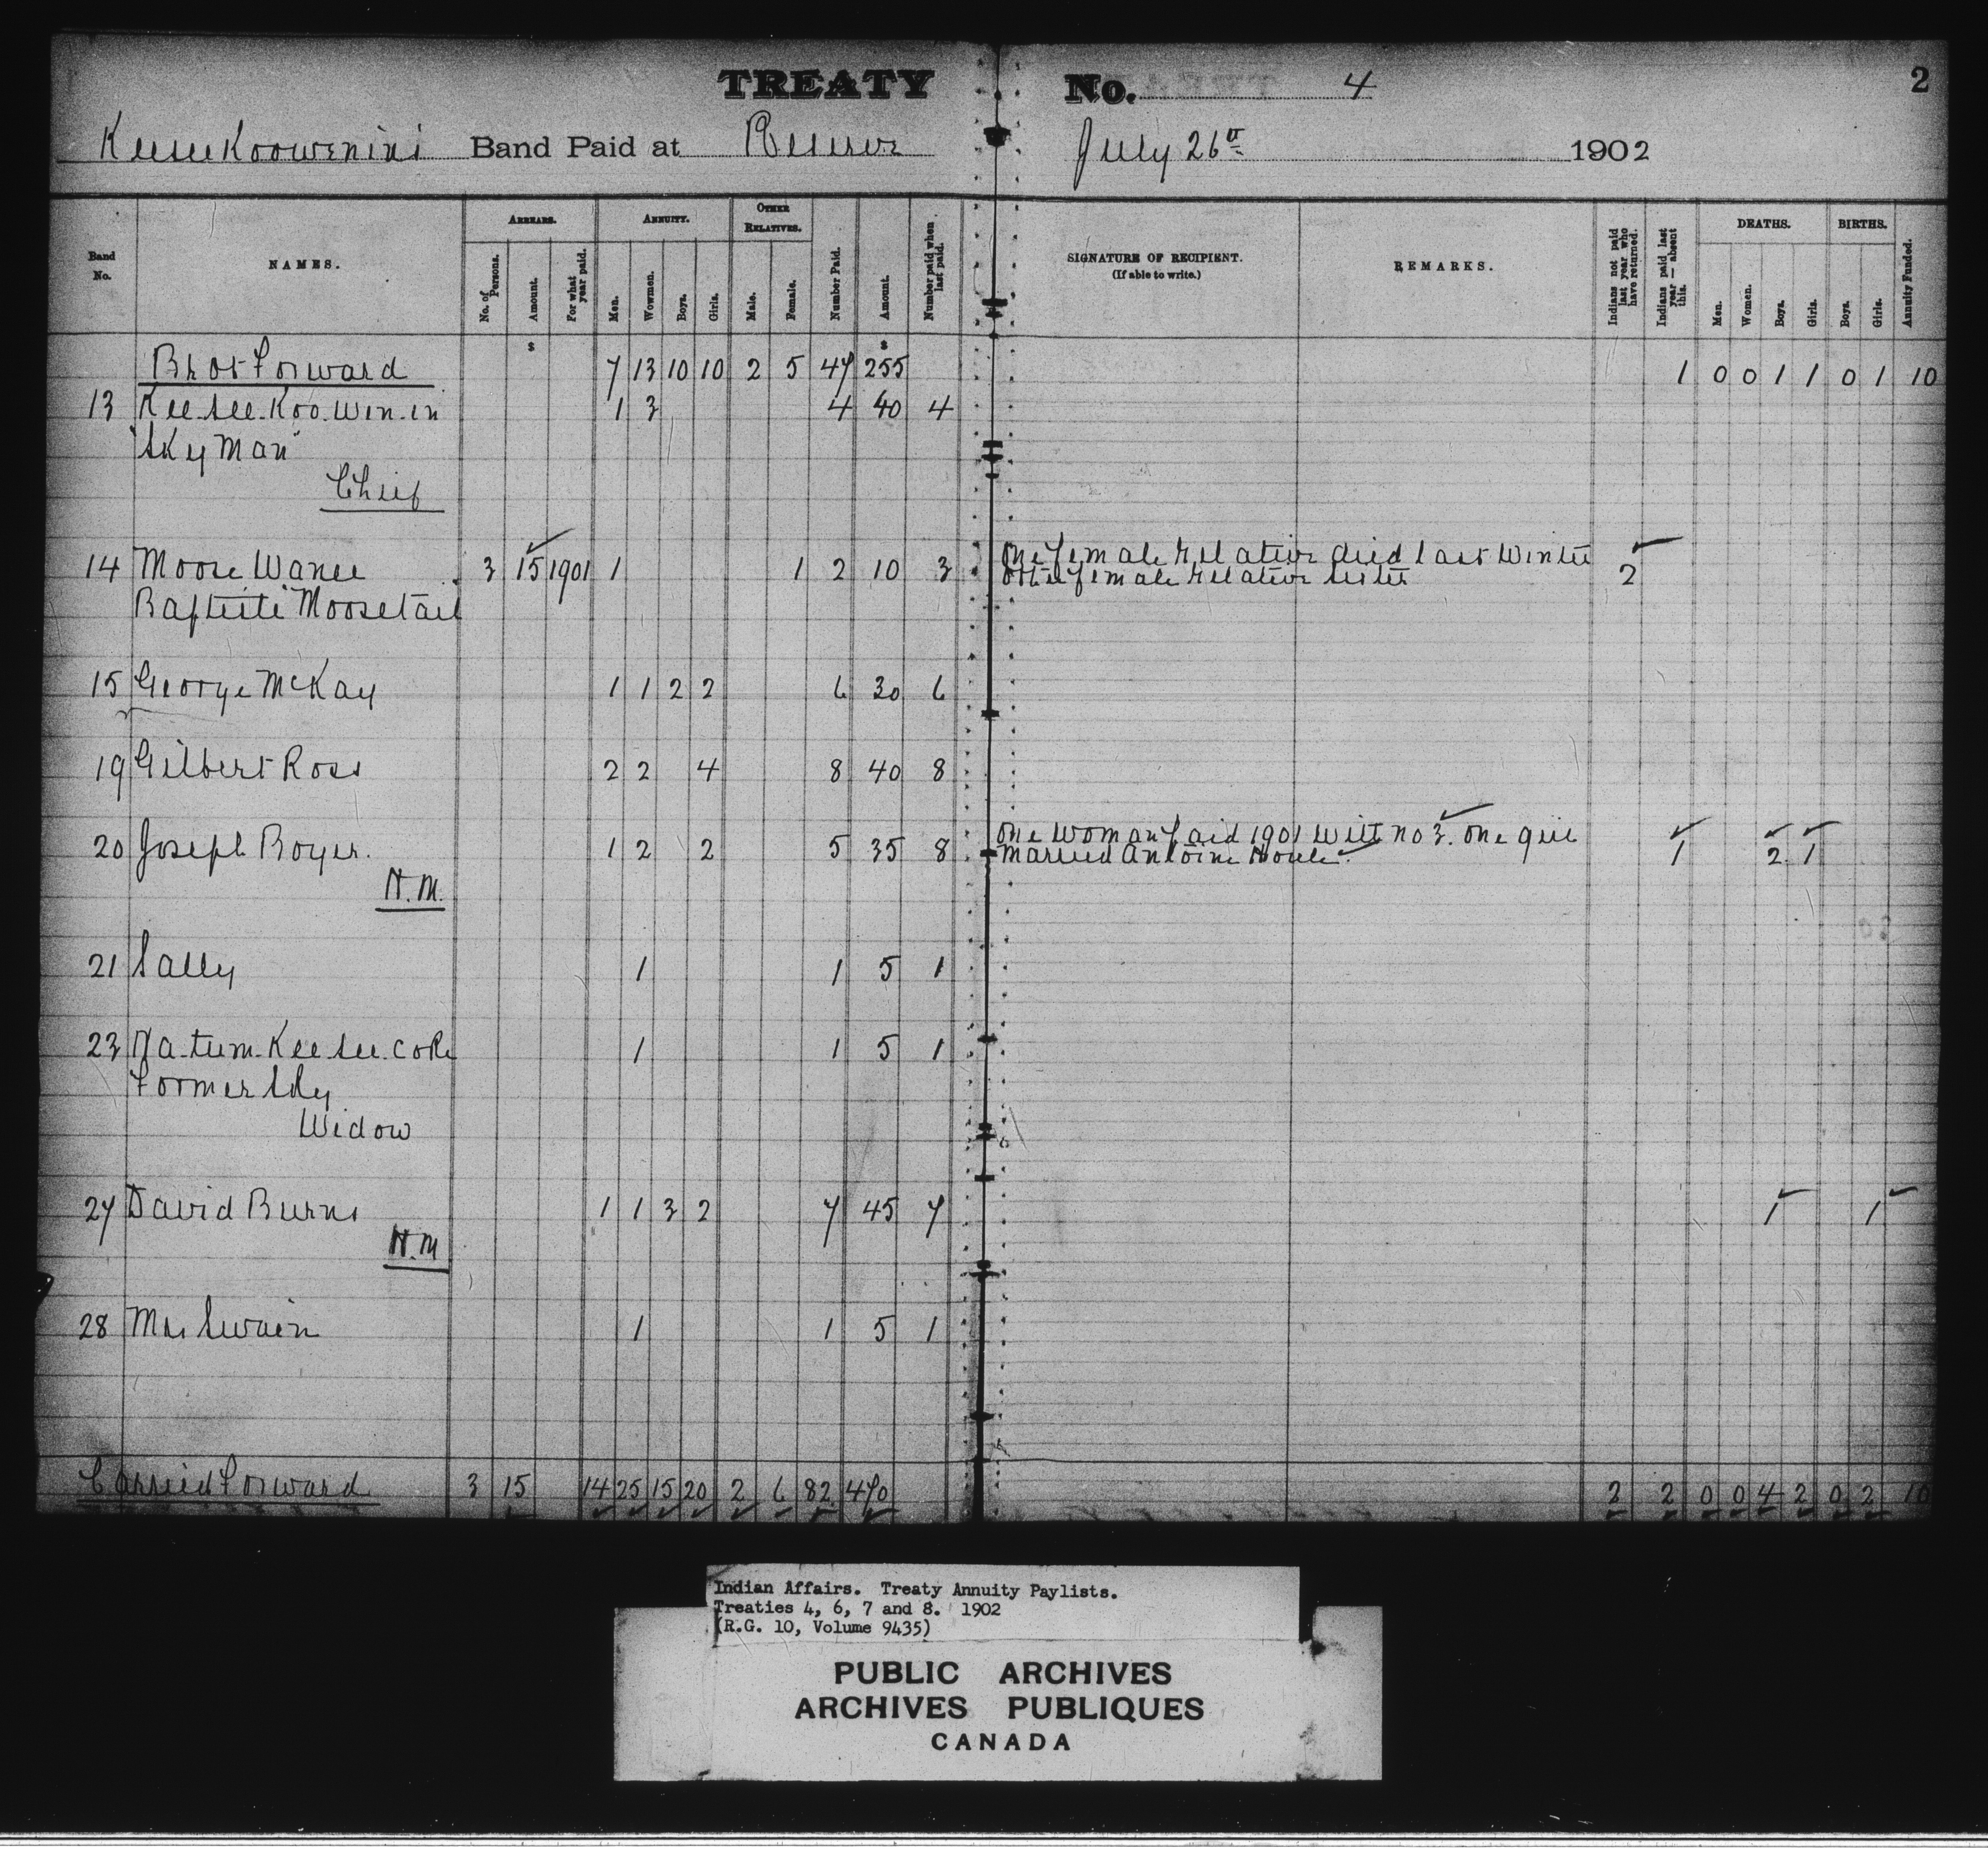 TREATY No. 4 2
Keeseekoowenins Band Paid at Reserve July 26th 1902
Band No. NAMES. ARREARS. No. of Persons. Amount. For what year paid. ANNUITY. Men. Wowmen. Boys. Girls. OTHER RELATIVES. Male. Female. Number Paid. Amount. Number paid when last paid. SIGNATURE OF RECIPIENT. (If able to write.) REMARKS. Indians not paid last year who have returned. Indians paid last year — absent this. DEATHS. Men. Women. Boys. Girls. BIRTHS. Boys. Girls. Annuity Funded.
$ $
Brot Forward 7 13 10 10 2 5 47 255 1 0 0 1 1 0 1 10
13 Kee-see-Koo-win-in 1 3 4 40 4
"Sky Man"
Chief
14 Moose Wanee 3 15 1901 1 1 2 10 3 One female relative died last winter 2
other female relative sister
Baptiste Moosetail
15 George McKay 1 1 2 2 6 30 6
19 Gilbert Ross 2 2 4 8 40 8
20 Joseph Boyer. 1 2 2 5 35 8 One woman paid 1901 with no 3. One girl 1 2 1
married Antoine Houle
H.M.
21 Sally 1 1 5 1
23 Na-tum-Kee-see-coke 1 1 5 1
Former
Widow
27 David Burns 1 1 3 2 7 45 7 1 1
H.M
28 Mrs Swain 1 1 5 1
Carried Forward 3 15 14 25 15 20 2 6 82 470 2 2 0 0 4 2 0 2 10
Indian Affairs. Treaty Annuity Paylists.
Treaties 4, 6, 7 and 8. 1902
(R.G. 10, Volume 9435)
PUBLIC ARCHIVES
ARCHIVES PUBLIQUES
CANADA